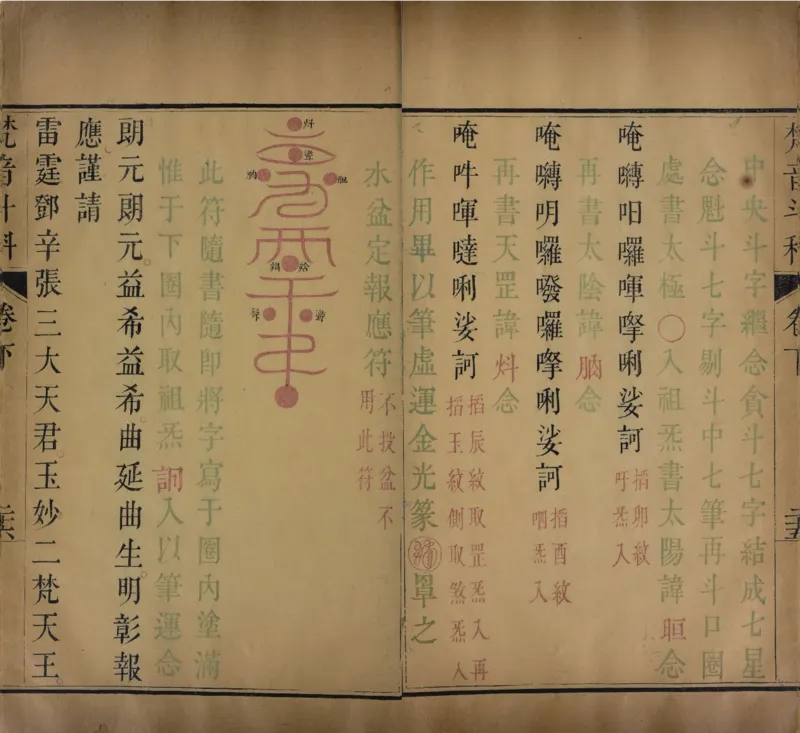 中央斗字繼念貪斗七字結成七星
念魁斗七字剔斗中七筆再斗口圈
處書太極〇入祖炁書太陽諱 𣆯念
唵嚩呬囉㗲㘄唎娑訶 搯卯紋吁炁入
再書太陰諱 念
唵嚩明囉𠿒囉㘄唎娑訶 搯酉紋呬炁入
再書天罡諱 炓念
唵吽㗲噠唎娑訶 搯辰紋取罡炁入再搯玉紋側取煞炁入
作用畢以筆虛運金光篆 罩之
水盆定報應符 不投盆不用此符
此符隨書隨即將字寫于圈內塗滿
惟于下圈內取祖炁 訶入以筆運念
朗元朗元。益希益希。曲延曲生。明彰報
應謹請
雷霆鄧辛張三大天君玉妙二梵天王。
梵音斗科 卷下